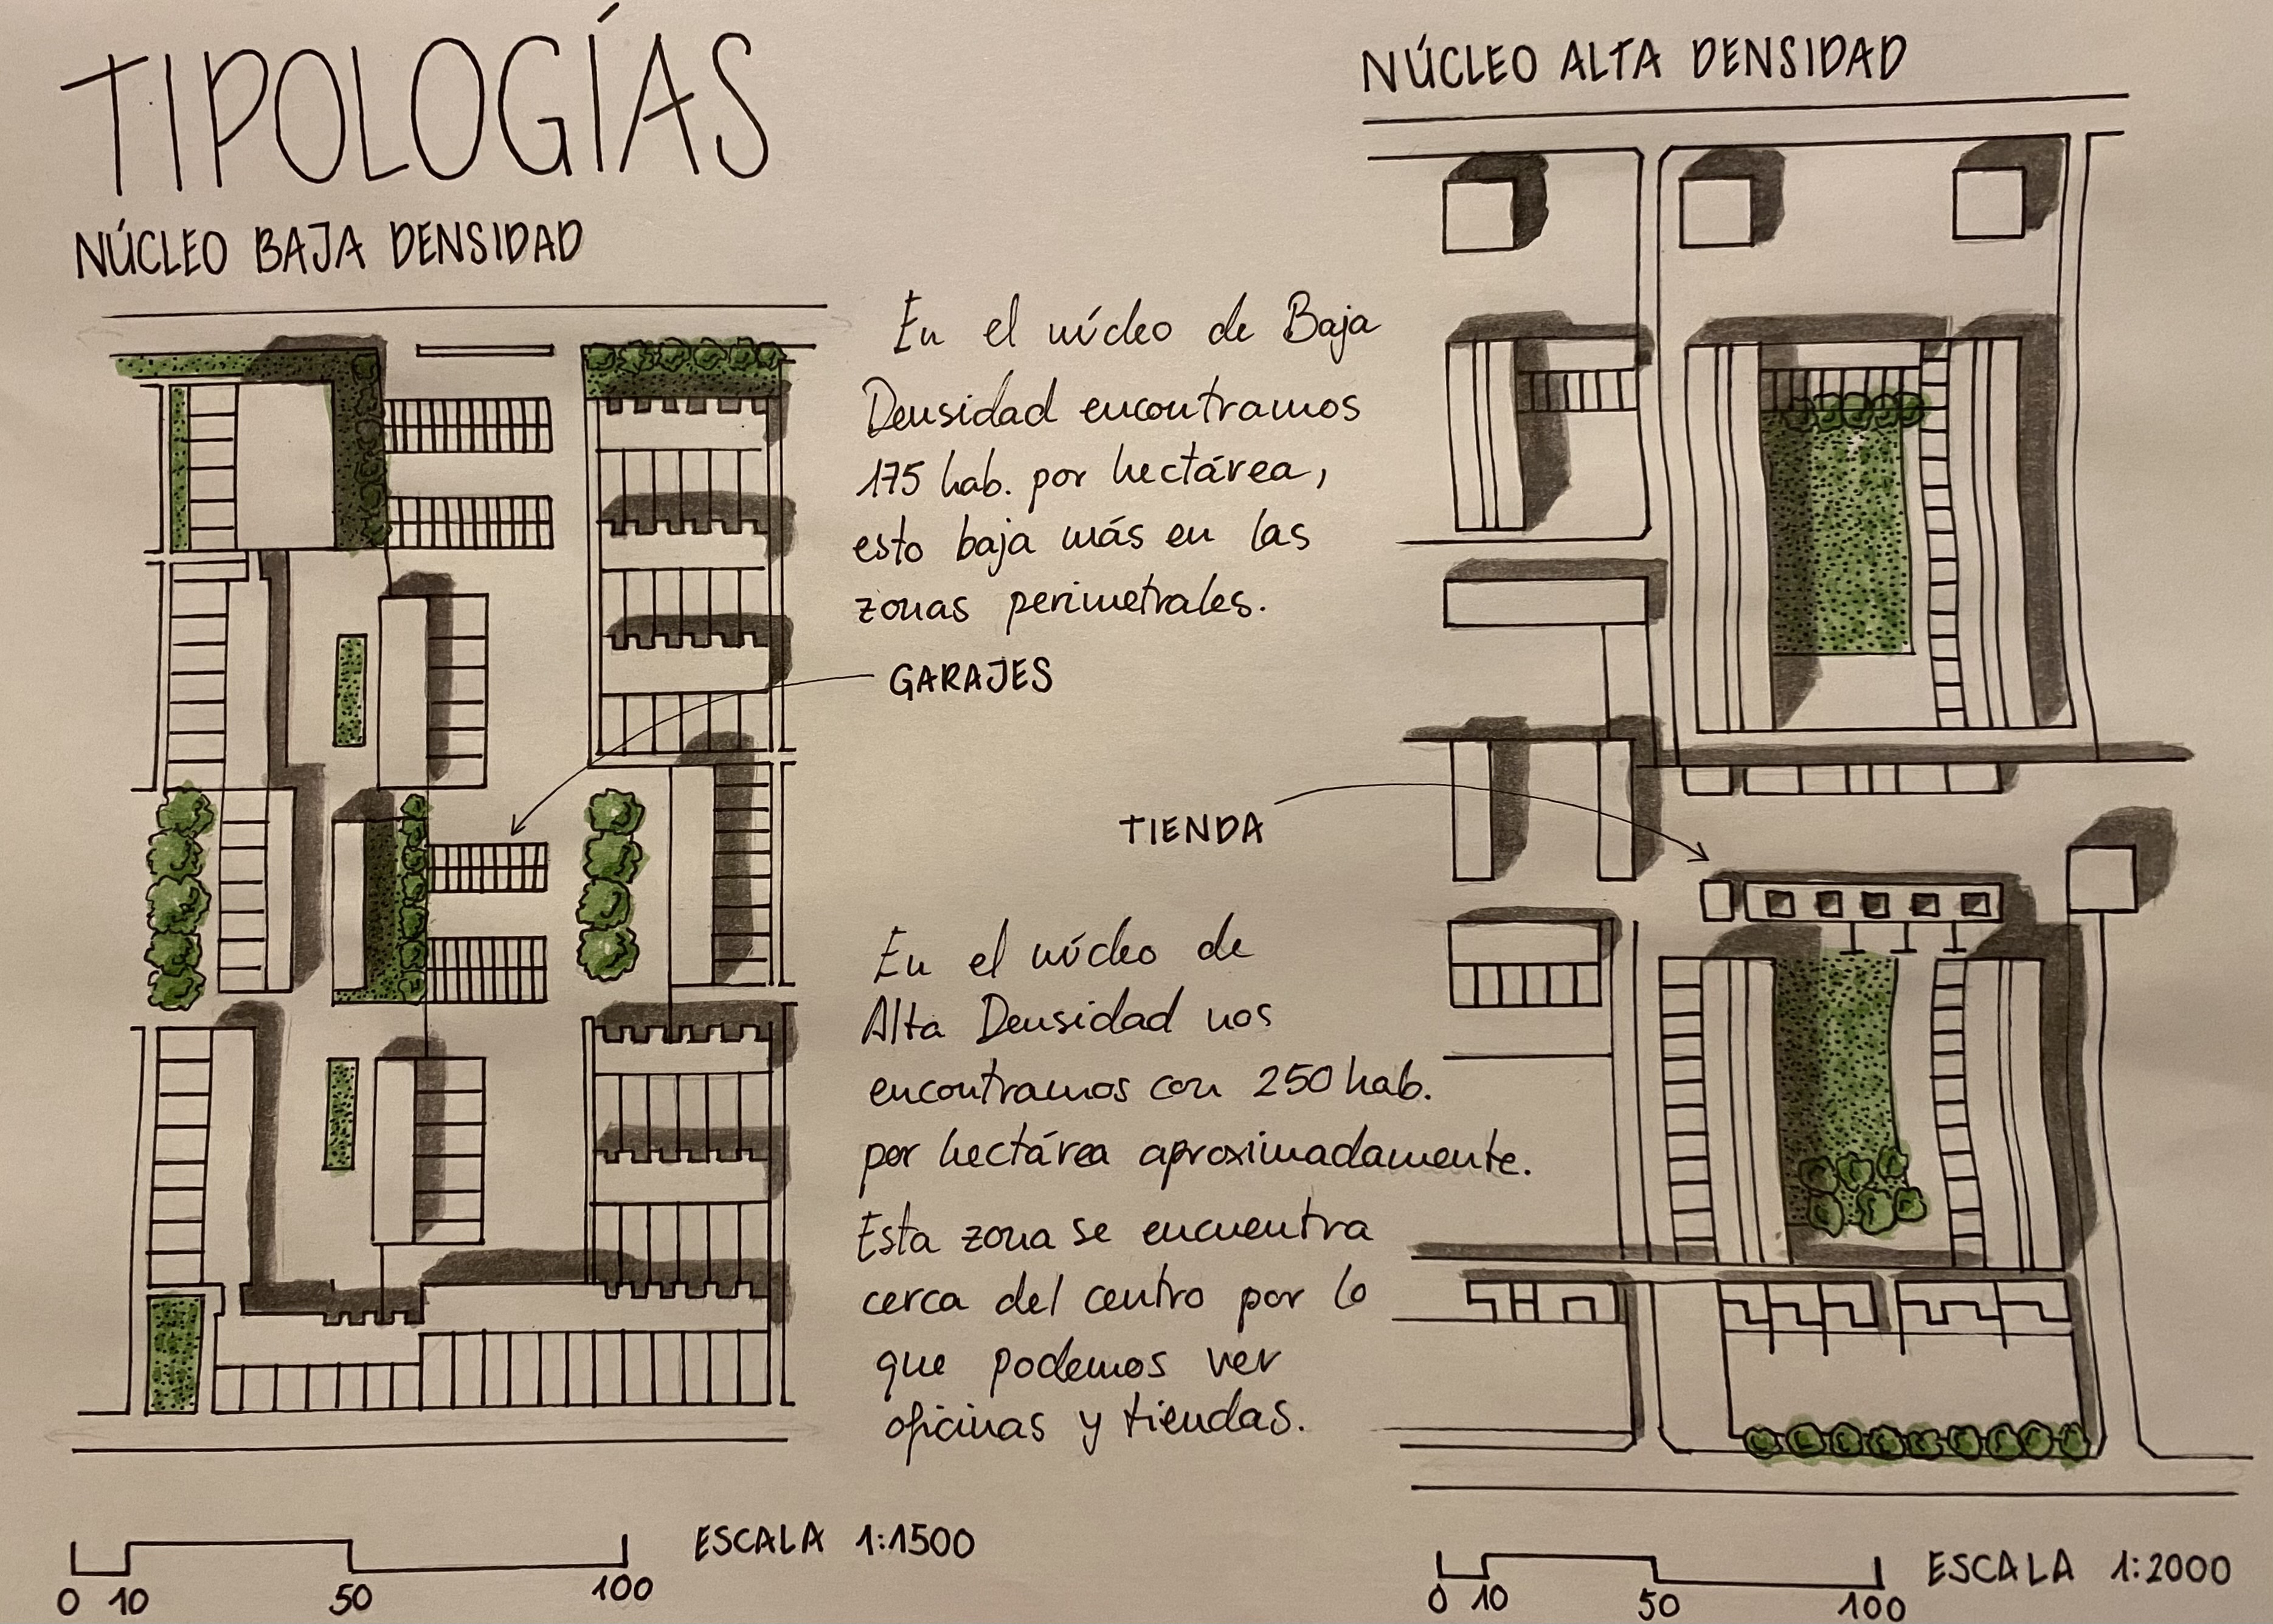 TIPOLOGÍAS
NÚCLEO BAJA DENSIDAD
En el núcleo de Baja
Densidad encontramos
175 hab. por hectárea,
esto baja más en las
zonas perimetrales.
GARAJES
0 10 50 100
ESCALA 1:1500
NÚCLEO ALTA DENSIDAD
TIENDA
En el núcleo de
Alta Densidad nos
encontramos con 250 hab.
por hectárea aproximadamente.
Esta zona se encuentra
cerca del centro por lo
que podemos ver
oficinas y tiendas.
0 10 50 100
ESCALA 1:2000